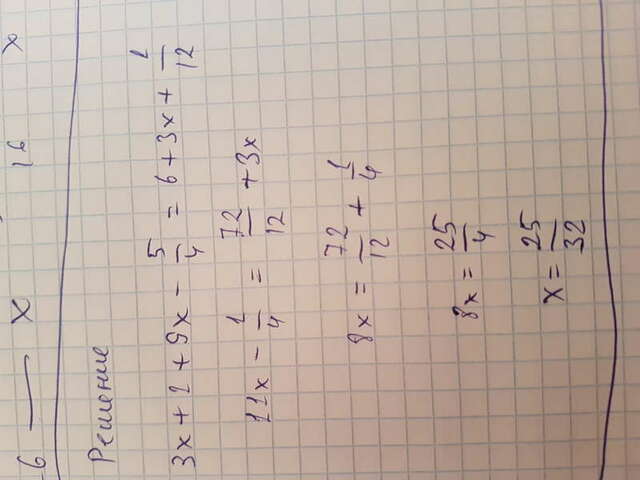 6 — x 16 x
Решение
3x + 1 + 9x - 5/4 = 6 + 3x + 1/12
11x - 1/4 = 72/12 + 3x
8x = 72/12 + 1/4
8x = 25/4
x = 25/32